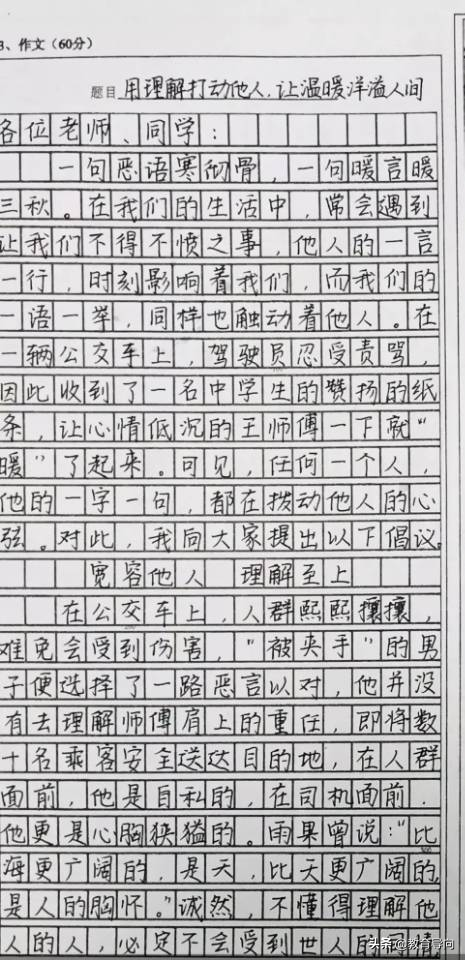 3、作文（60分）
题目 用理解打动他人，让温暖洋溢人间
各位老师、同学：
一句恶语寒彻骨，一句暖言暖
三秋。在我们的生活中，常会遇到
让我们不得不愤之事，他人的一言
一行，时刻影响着我们，而我们的
一语一举，同样也触动着他人。在
一辆公交车上，驾驶员忍受责骂，
因此收到了一名中学生的赞扬的纸
条，让心情低沉的王师傅一下就“
暖”了起来。可见，任何一个人，
他的一字一句，都在拨动他人的心
弦。对此，我向大家提出以下倡议。
宽容他人 理解至上
在公交车上，人群熙熙攘攘，
难免会受到伤害，“被夹手”的男
子便选择了一路恶言以对，他并没
有去理解师傅肩上的重任，即将数
十名乘客安全送达目的地，在人群
面前，他是自私的，在司机面前．
他更是心胸狭猛的。雨果曾说：“比
海更广阔的，是天，比天更广阔的，
是人的胸怀。”诚然，不懂得理解他
人的人，必定不会受到世人的同情
头条@教育学问